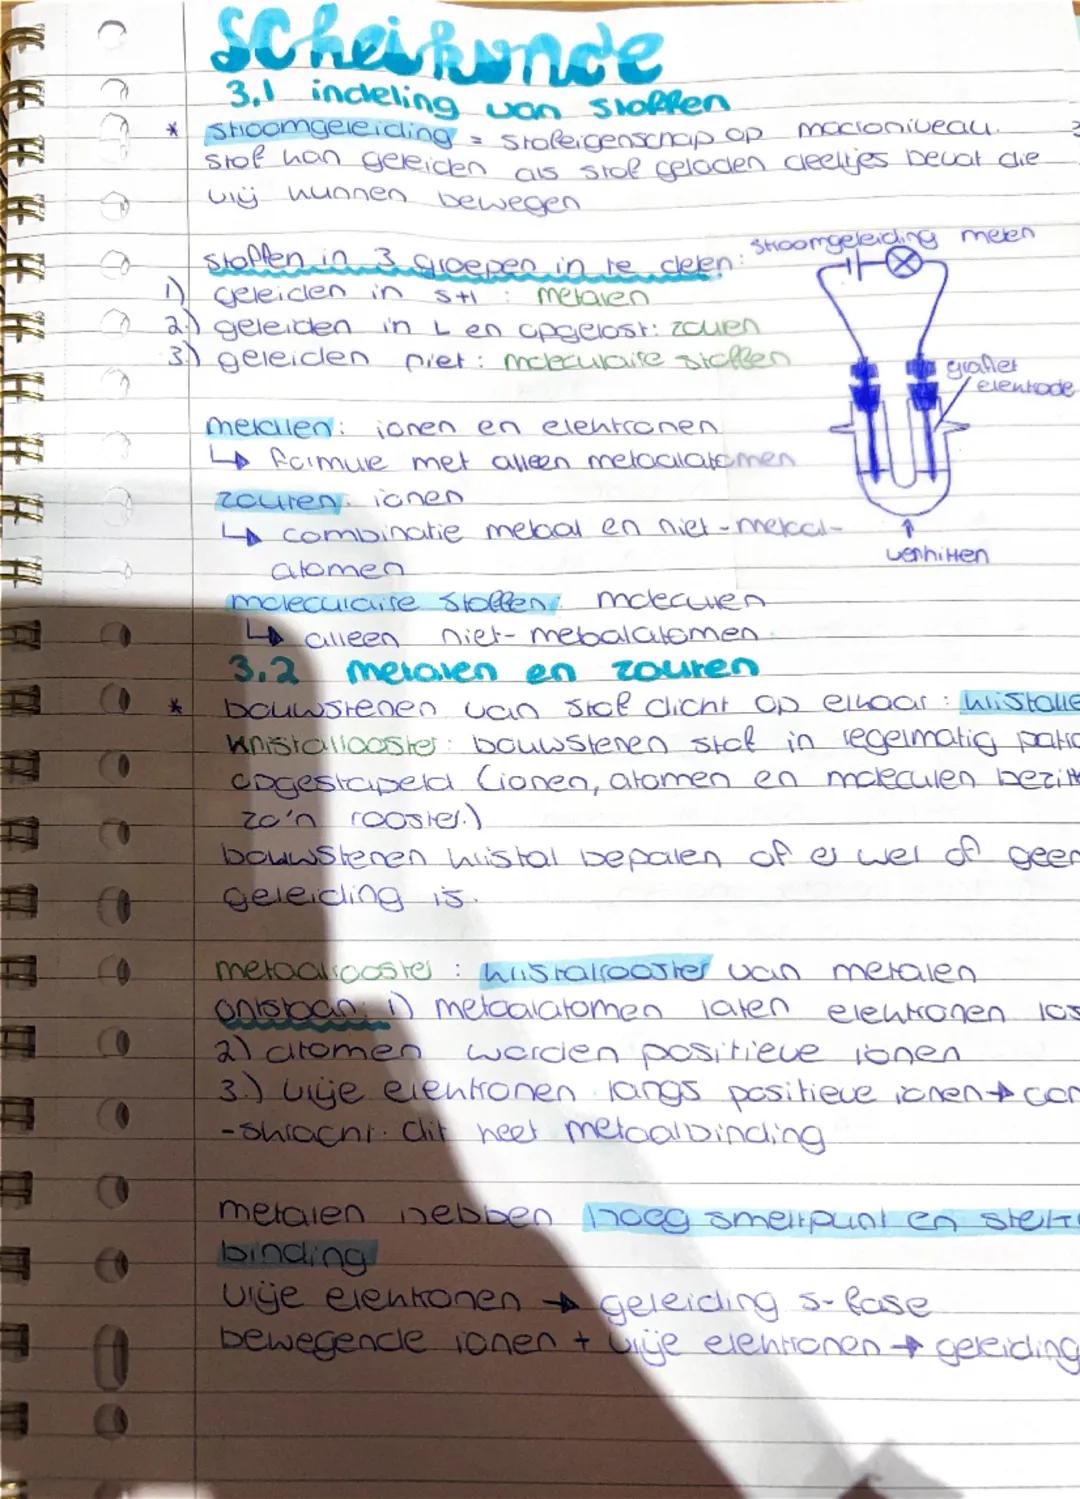 scheikunde
3.1 indeling van stoffen
* stroomgeleiding = stofeigenschap op macroniveau.
stof kan geleiden als stof geladen deeltjes bevat die
vrij kunnen bewegen
stoffen in 3 groepen in te delen:
1) geleiden in s+l : metalen
2.) geleiden in L en opgelost: zouten
3.) geleiden niet: moleculaire stoffen
stroomgeleiding meten
grafiet
elektrode
verhitten
metalen: ionen en elektronen
↳ formule met alleen metaalatomen
zouten: ionen
↳ combinatie metaal en niet-metaal-
atomen
moleculaire stoffen: moleculen
↳ alleen niet-metaalatomen
3.2 metalen en zouten
* bouwstenen van stof dicht op elkaar : kristalle
kristalrooster: bouwstenen stof in regelmatig patro
opgestapeld (ionen, atomen en moleculen bezitt
zo'n rooster.)
bouwstenen kristal bepalen of er wel of geen
geleiding is.
metaalrooster : kristalrooster van metalen
ontstaan: 1) metaalatomen laten elektronen los
2) atomen worden positieve ionen
3.) vrije elektronen langs positieve ionen → aan
-skracht. dit heet metaalbinding
metalen hebben hoog smeltpunt en sterke
binding
vrije elektronen → geleiding s-fase
bewegende ionen + vrije elektronen → geleiding